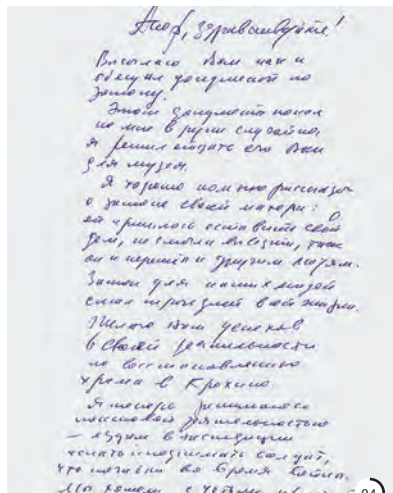 здравствуйте!
Высылаю Вам как и
обещал документ по
затону.
Этот документ попал
ко мне в руки случайно,
я решил отдать его Вам
для музея.
Я хорошо помню рассказы
о затоне своей матери:
ей пришлось оставить свой
дом, не смогли вывезти, так
он и другим людям.
Затон для наших людей
стал трагедией всей жизни.
Желаю Вам успехов
в своей деятельности
по восстановлению
храма в Крохино.
Я теперь занимаюсь
поисковой деятельностью
– ездим в экспедиции
искать и поднимать солдат,
что погибли во время войны.
Мы с детьми
24